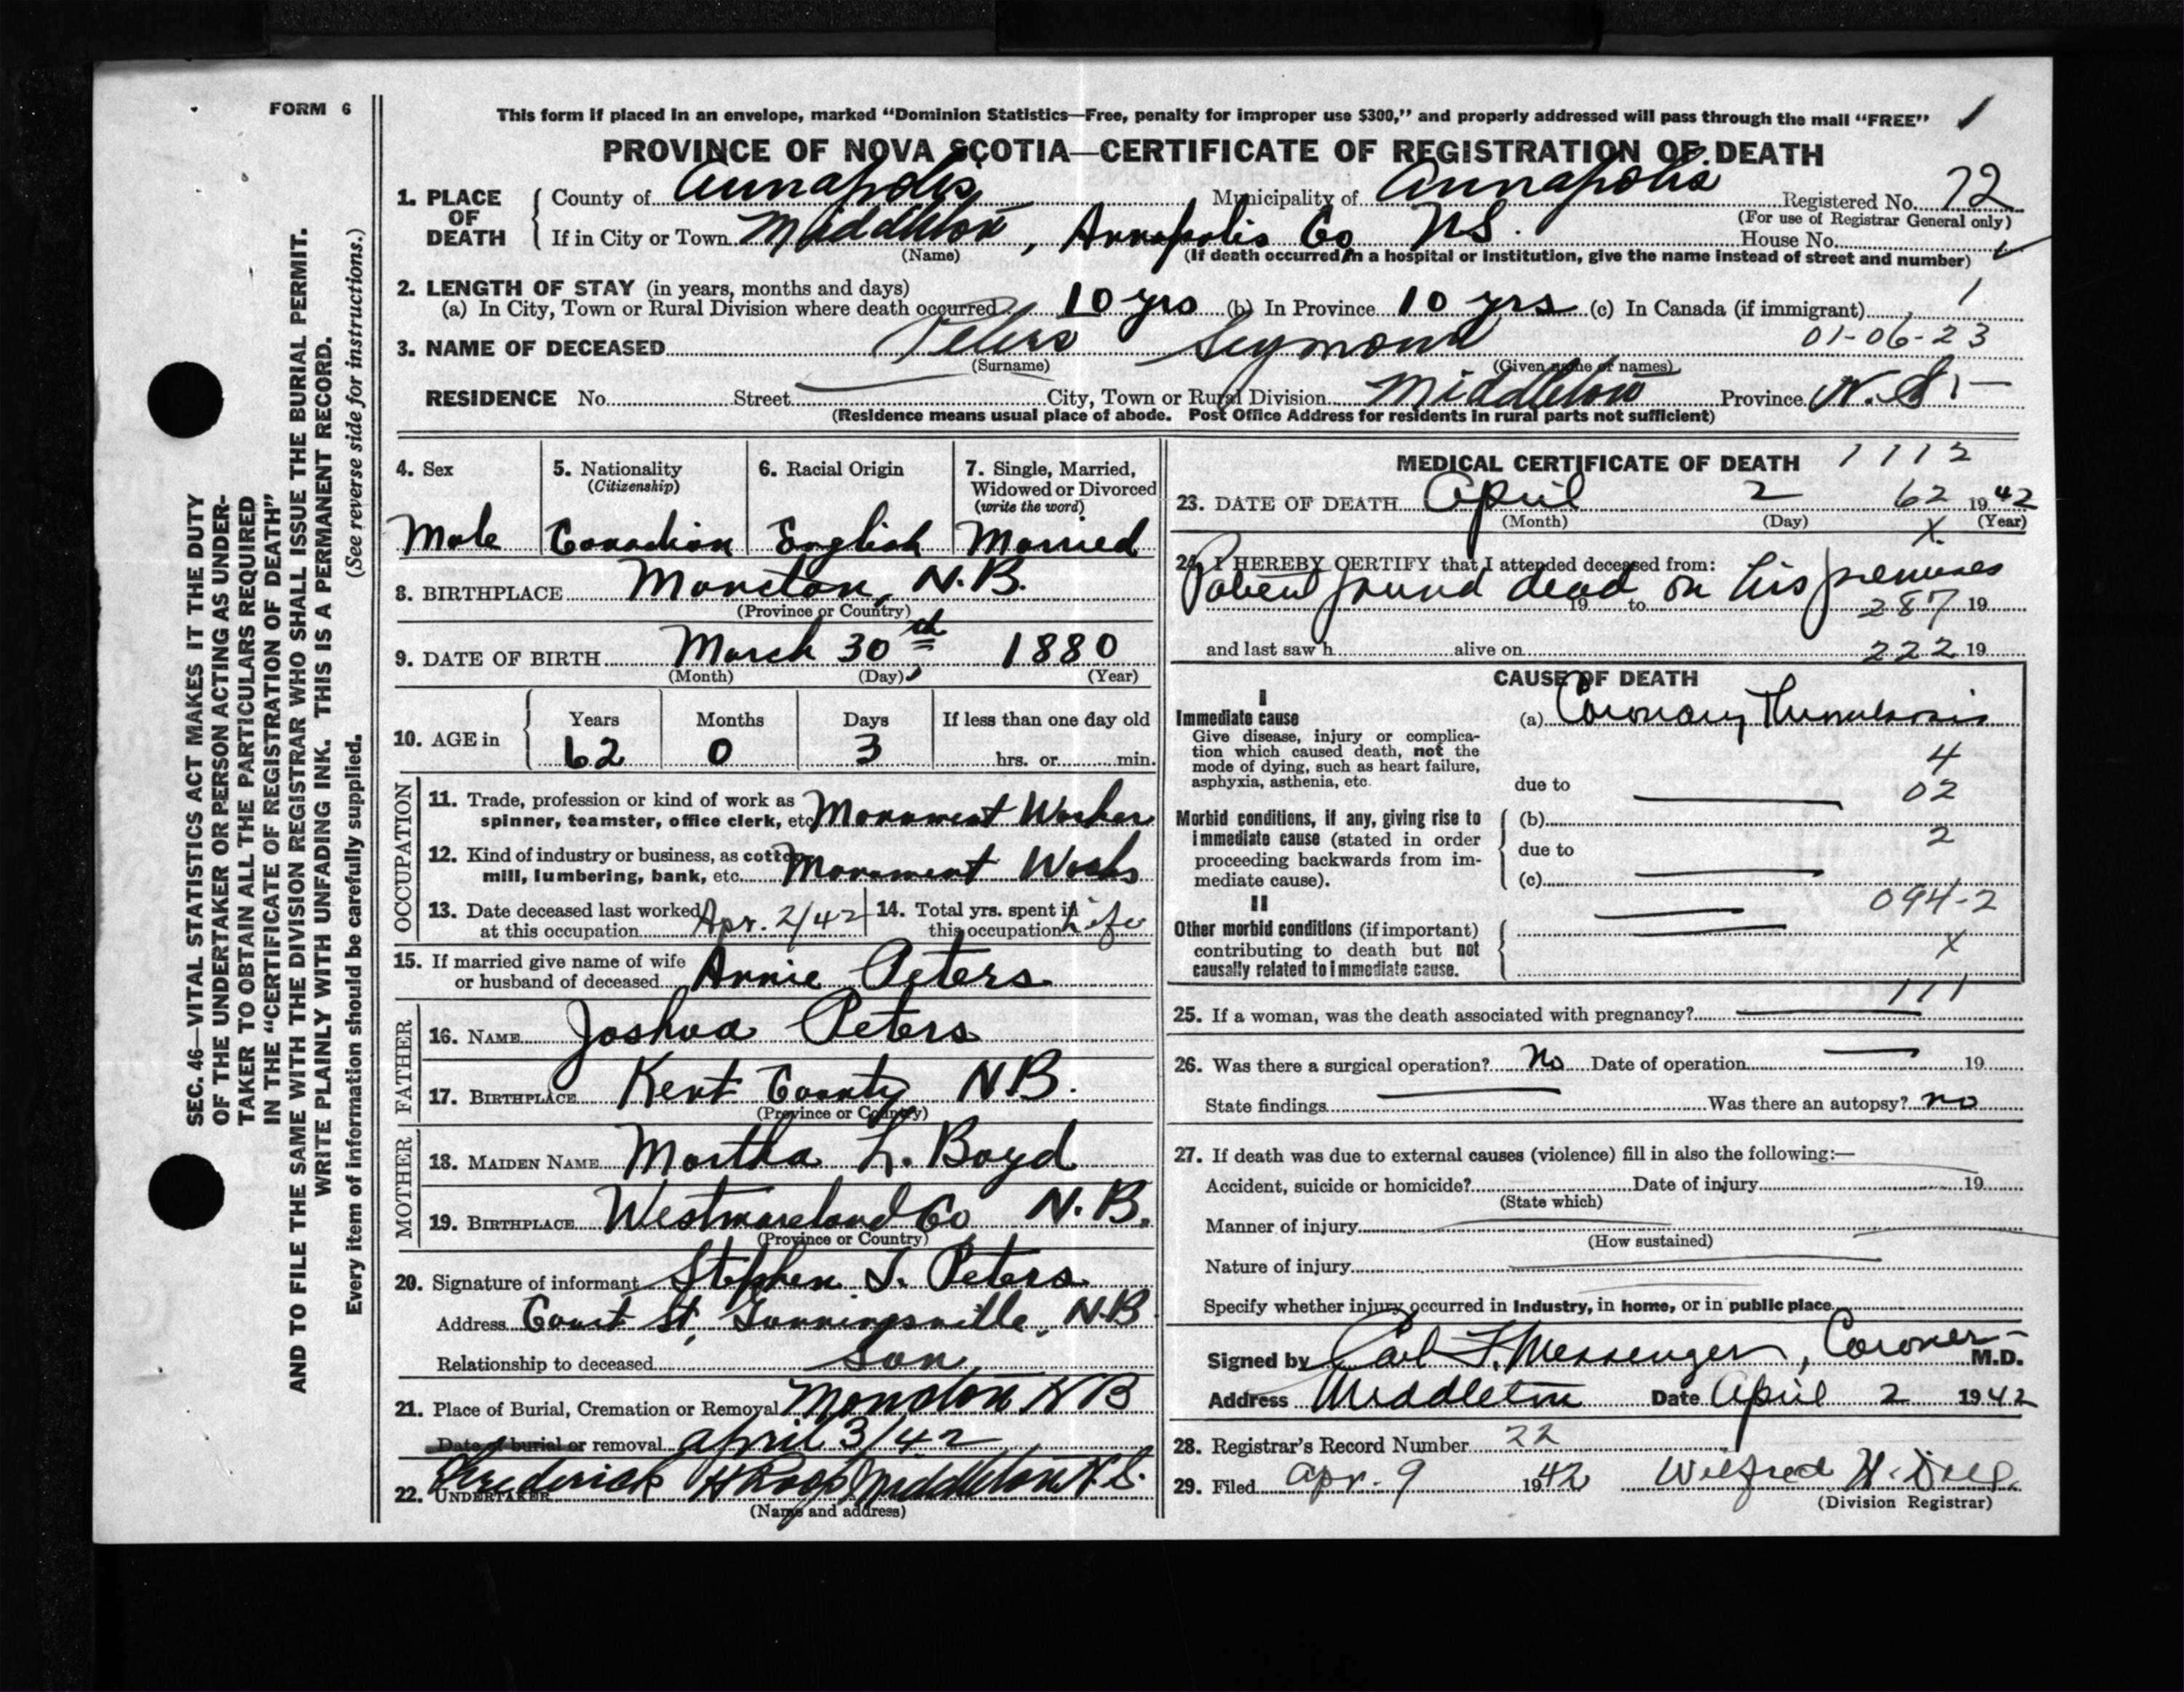 FORM 6
This form if placed in an envelope, marked “Dominion Statistics—Free, penalty for improper use $300,” and properly addressed will pass through the mail “FREE” 1
PROVINCE OF NOVA SCOTIA—CERTIFICATE OF REGISTRATION OF DEATH
1. PLACE OF DEATH
County of Annapolis Municipality of Annapolis Registered No. 72
(For use of Registrar General only)
If in City or Town Middleton, Annapolis Co N.S. House No.
(Name) (If death occurred in a hospital or institution, give the name instead of street and number)
2. LENGTH OF STAY (in years, months and days)
(a) In City, Town or Rural Division where death occurred 10 yrs (b) In Province 10 yrs (c) In Canada (if immigrant) 1
3. NAME OF DECEASED Peters Seymour 01-06-23
(Surname) (Given name or names)
RESIDENCE No. Street City, Town or Rural Division Middleton Province N.S.
(Residence means usual place of abode. Post Office Address for residents in rural parts not sufficient)
4. Sex Male
5. Nationality (Citizenship) Canadian
6. Racial Origin English
7. Single, Married, Widowed or Divorced (write the word) Married
8. BIRTHPLACE Moncton, N.B.
(Province or Country)
9. DATE OF BIRTH March 30th, 1880
(Month) (Day) (Year)
10. AGE in Years 62 Months 0 Days 3 If less than one day old hrs. or min.
OCCUPATION
11. Trade, profession or kind of work as spinner, teamster, office clerk, etc. Monument Worker
12. Kind of industry or business, as cotton mill, lumbering, bank, etc. Monument Works
13. Date deceased last worked at this occupation Apr. 2/42
14. Total yrs. spent in this occupation Life
15. If married give name of wife or husband of deceased Annie Peters
FATHER
16. NAME Joshua Peters
17. BIRTHPLACE Kent County N.B.
(Province or Country)
MOTHER
18. MAIDEN NAME Martha L. Boyd
19. BIRTHPLACE Westmoreland Co N.B.
(Province or Country)
20. Signature of informant Stephen J. Peters
Address Court St, Gunningsville, N.B
Relationship to deceased Son
21. Place of Burial, Cremation or Removal Moncton N B
Date of burial or removal April 3/42
22. UNDERTAKER Frederick H Roop Middleton N.S.
(Name and address)
MEDICAL CERTIFICATE OF DEATH 1112
23. DATE OF DEATH April 2 62 1942
(Month) (Day) X (Year)
24. I HEREBY CERTIFY that I attended deceased from:
Patient found dead on his premises
19 to 287 19
and last saw h alive on 222 19
CAUSE OF DEATH
I
Immediate cause (a) Coronary Thrombosis
Give disease, injury or complication which caused death, not the mode of dying, such as heart failure, asphyxia, asthenia, etc.
4
due to 02
Morbid conditions, if any, giving rise to immediate cause (stated in order proceeding backwards from immediate cause).
(b) 2
due to
(c)
094-2
II
Other morbid conditions (if important) contributing to death but not causally related to immediate cause.
X
111
25. If a woman, was the death associated with pregnancy?
26. Was there a surgical operation? No Date of operation 19
State findings Was there an autopsy? no
27. If death was due to external causes (violence) fill in also the following:—
Accident, suicide or homicide? Date of injury 19
(State which)
Manner of injury
(How sustained)
Nature of injury
Specify whether injury occurred in Industry, in home, or in public place
Signed by Carl F. Messenger, Coroner M.D.
Address Middleton Date April 2 1942
28. Registrar's Record Number 22
29. Filed Apr. 9 1942 Wilfred H.
(Division Registrar)
SEC. 46—VITAL STATISTICS ACT MAKES IT THE DUTY
OF THE UNDERTAKER OR PERSON ACTING AS UNDER-
TAKER TO OBTAIN ALL THE PARTICULARS REQUIRED
IN THE “CERTIFICATE OF REGISTRATION OF DEATH”
AND TO FILE THE SAME WITH THE DIVISION REGISTRAR WHO SHALL ISSUE THE BURIAL PERMIT.
WRITE PLAINLY WITH UNFADING INK. THIS IS A PERMANENT RECORD.
Every item of information should be carefully supplied. (See reverse side for instructions.)